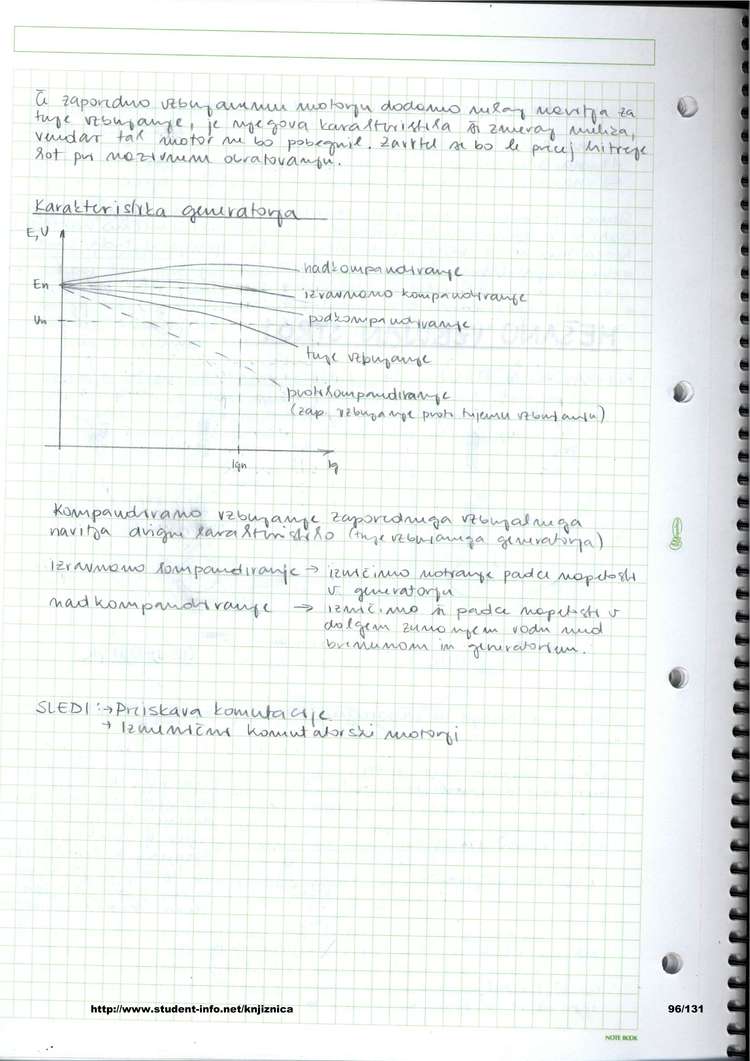 Če zaporedno vzbujanemu motorju dodamo nekaj navitja za
tuje vzbujanje, je njegova karakteristika še zmeraj mehka,
vendar tak motor ne bo pobegnil. Zavrtel se bo le precej hitreje
kot pri nazivnem obratovanju.
Karakteristika generatorja
E,U
En
Un
nadkompaundiranje
izravnano kompaundiranje
podkompaundiranje
tuje vzbujanje
protikompaundiranje
(zap. vzbujanje proti tujemu vzbujanju)
Ign
Ig
Kompaundirano vzbujanje zaporednega vzbujalnega
navitja dvigne karakteristiko (tuje vzbujanega generatorja)
izravnano kompaundiranje → izničimo notranje padce napetosti
v generatorju
nadkompaundiranje → izničimo še padce napetosti v
dolgem zunanjem vodu med
bremenom in generatorjem.
SLEDI: → Preiskava komutacije
→ Izmenični komutatorski motorji
http://www.student-info.net/knjiznica
96/131
NOTE BOOK